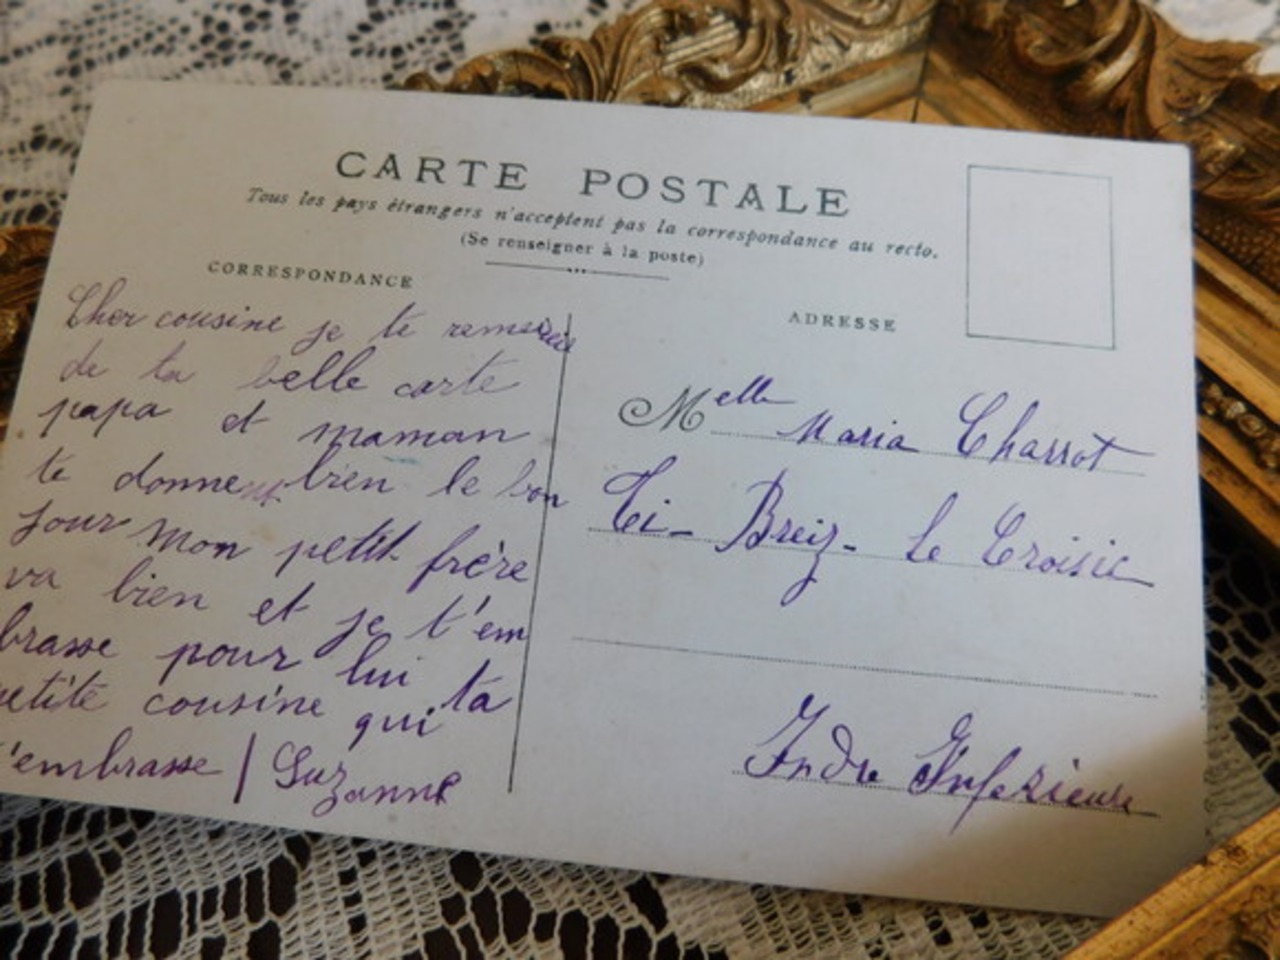 CARTE POSTALE
Tous les pays étrangers n'acceptent pas la correspondance au recto.
(Se renseigner à la poste)
CORRESPONDANCE
Cher cousine je te remercie
de ta belle carte
papa et maman
te donnent bien le bon
jour mon petit frère
va bien et je t'em
brasse pour lui ta
petite cousine qui
t'embrasse / Suzanne
ADRESSE
Melle Maria Charrot
Ti- Breiz- Le Croisic
Indre Inferieure